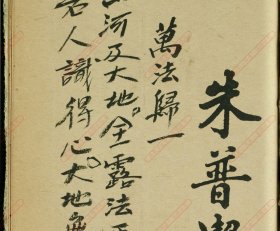 朱普
萬法歸一
山河及大地全露法
若人識得心大地